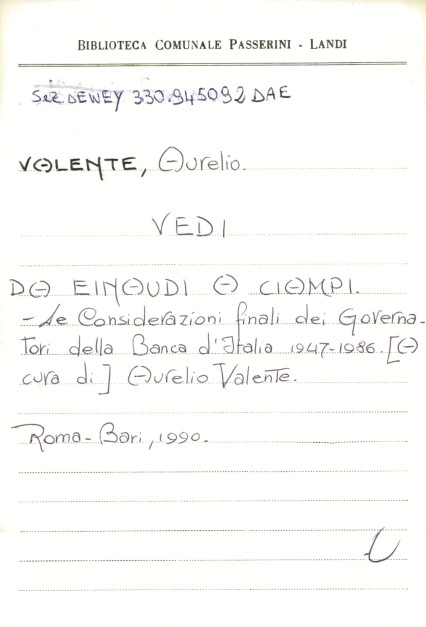 BIBLIOTECA COMUNALE PASSERINI - LANDI
Sez DEWEY 330.945092 DAE
VALENTE, Aurelio.
VEDI
DA EINAUDI A CIAMPI.
- Le Considerazioni finali dei Governa-
tori della Banca d'Italia 1947-1986. [A
cura di] Aurelio Valente.
Roma-Bari, 1990.